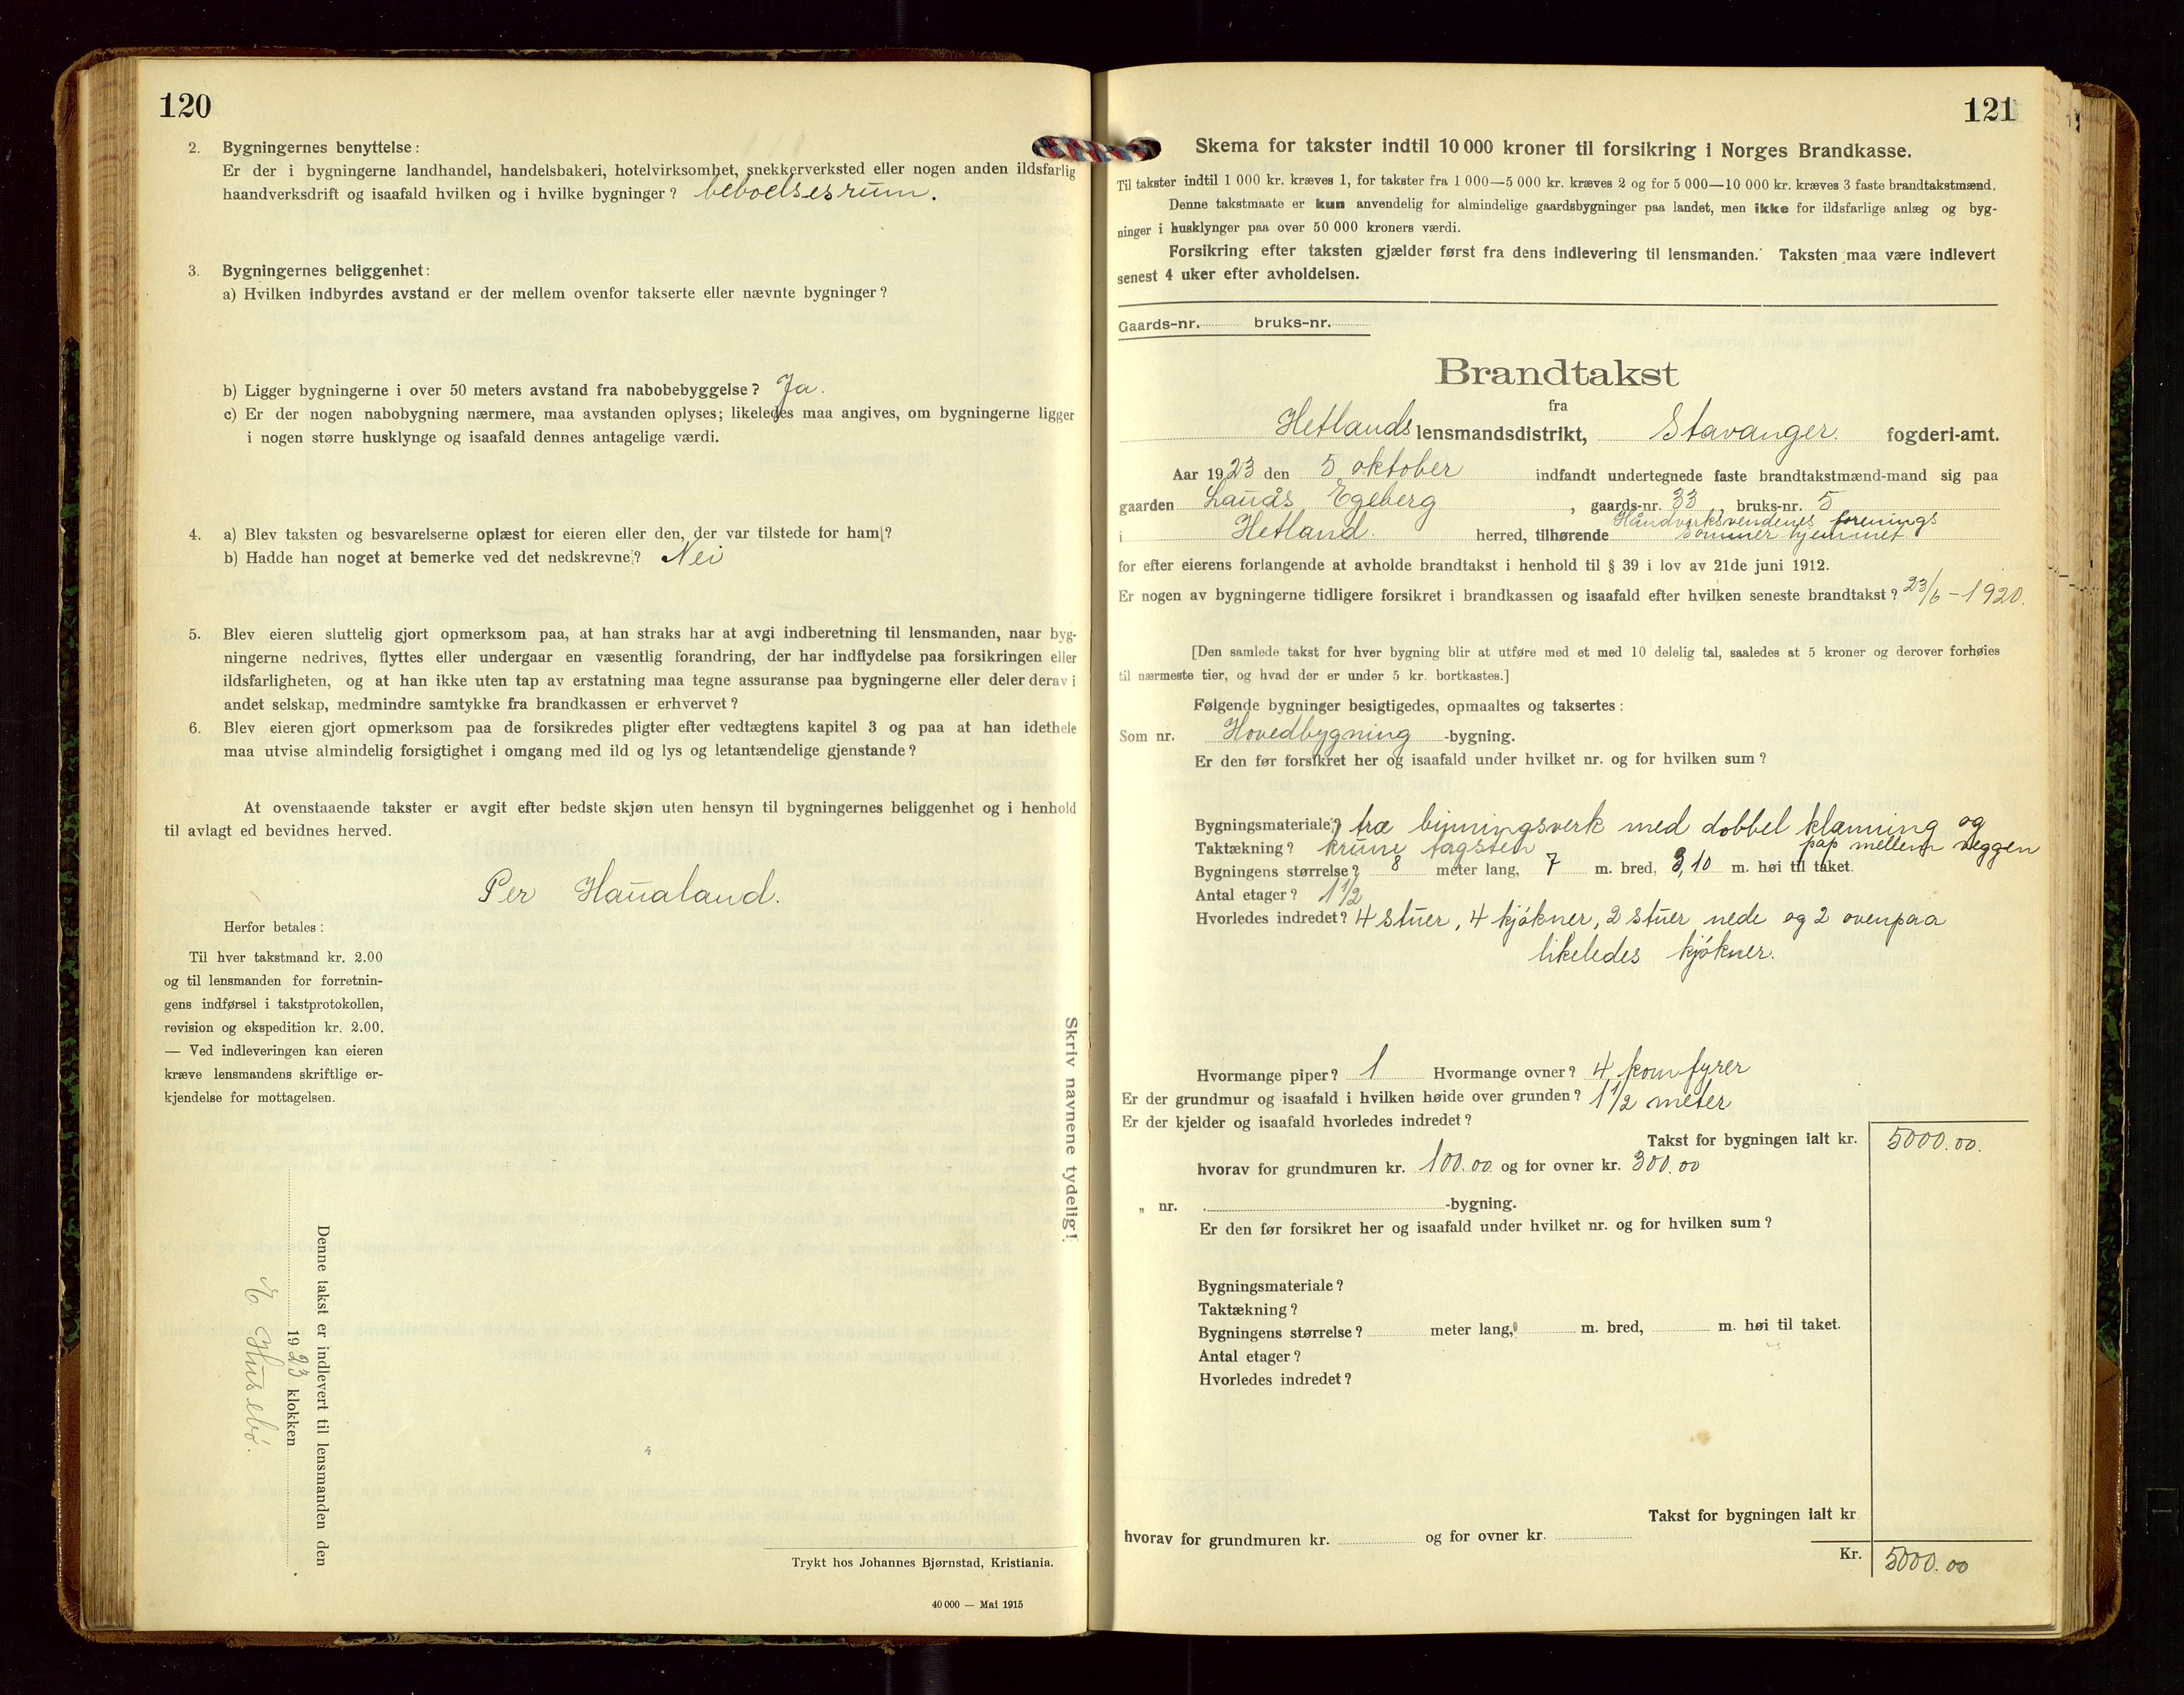 120
2. Bygningernes benyttelse:
Er der i bygningerne landhandel, handelsbakeri, hotelvirksomhet, snekkerverksted eller nogen anden ildsfarlig
haandverksdrift og isaafald hvilken og i hvilke bygninger? beboelsesrum.
3. Bygningernes beliggenhet:
a) Hvilken indbyrdes avstand er der mellem ovenfor takserte eller nævnte bygninger?
b) Ligger bygningerne i over 50 meters avstand fra nabobebyggelse? Ja.
c) Er der nogen nabobygning nærmere, maa avstanden oplyses; likeledes maa angives, om bygningerne ligger
i nogen større husklynge og isaafald dennes antagelige værdi.
4. a) Blev taksten og besvarelserne oplæst for eieren eller den, der var tilstede for ham?
b) Hadde han noget at bemerke ved det nedskrevne? Nei
5. Blev eieren sluttelig gjort opmerksom paa, at han straks har at avgi indberetning til lensmanden, naar byg-
ningerne nedrives, flyttes eller undergaar en væsentlig forandring, der har indflydelse paa forsikringen eller
ildsfarligheten, og at han ikke uten tap av erstatning maa tegne assuranse paa bygningerne eller deler derav i
andet selskap, medmindre samtykke fra brandkassen er erhvervet?
6. Blev eieren gjort opmerksom paa de forsikredes pligter efter vedtægtens kapitel 3 og paa at han idethele
maa utvise almindelig forsigtighet i omgang med ild og lys og letantændelige gjenstande?
At ovenstaaende takster er avgit efter bedste skjøn uten hensyn til bygningernes beliggenhet og i henhold
til avlagt ed bevidnes herved.
Per Haualand.
Herfor betales:
Til hver takstmand kr. 2.00
og til lensmanden for forretnin-
gens indførsel i takstprotokollen,
revision og ekspedition kr. 2.00.
— Ved indleveringen kan eieren
kræve lensmandens skriftlige er-
kjendelse for mottagelsen.
Denne takst er indlevert til lensmanden den
1923 klokken
E. Husebø.
Skriv navnene tydelig!
Trykt hos Johannes Bjørnstad, Kristiania.
40 000 — Mai 1915
121
Skema for takster indtil 10 000 kroner til forsikring i Norges Brandkasse.
Til takster indtil 1 000 kr. kræves 1, for takster fra 1 000—5 000 kr. kræves 2 og for 5 000—10 000 kr. kræves 3 faste brandtakstmænd.
Denne takstmaate er kun anvendelig for almindelige gaardsbygninger paa landet, men ikke for ildsfarlige anlæg og byg-
ninger i husklynger paa over 50 000 kroners værdi.
Forsikring efter taksten gjælder først fra dens indlevering til lensmanden. Taksten maa være indlevert
senest 4 uker efter avholdelsen.
Gaards-nr. bruks-nr.
Brandtakst
fra
Hetlands lensmandsdistrikt, Stavanger. fogderi-amt.
Aar 1923 den 5 oktober indfandt undertegnede faste brandtakstmænd-mand sig paa
gaarden Lauås Egeberg, gaards-nr. 33, bruks-nr. 5
Håndverksvendenes forenings
i Hetland. herred, tilhørende sommerhjemmet
for efter eierens forlangende at avholde brandtakst i henhold til § 39 i lov av 21de juni 1912.
Er nogen av bygningerne tidligere forsikret i brandkassen og isaafald efter hvilken seneste brandtakst? 23/6-1920.
[Den samlede takst for hver bygning blir at utføre med et med 10 delelig tal, saaledes at 5 kroner og derover forhøies
til nærmeste tier, og hvad der er under 5 kr. bortkastes.]
Følgende bygninger besigtigedes, opmaaltes og taksertes:
Som nr. Hovedbygning -bygning.
Er den før forsikret her og isaafald under hvilket nr. og for hvilken sum?
Bygningsmateriale? træ binningsverk med dobbel klæning og
Taktækning? krum tagsten pap mellem veggen
Bygningens størrelse? 8 meter lang, 7 m. bred, 3,10 m. høi til taket.
Antal etager? 1 1/2
Hvorledes indredet? 4 stuer, 4 kjøkner, 2 stuer nede og 2 ovenpaa
likeledes kjøkner.
Hvormange piper? 1 Hvormange ovner? 4 komfyrer
Er der grundmur og isaafald i hvilken høide over grunden? 1 1/2 meter
Er der kjelder og isaafald hvorledes indredet?
Takst for bygningen ialt kr. 5000.00.
hvorav for grundmuren kr. 100.00 og for ovner kr. 300.00
„ nr. -bygning.
Er den før forsikret her og isaafald under hvilket nr. og for hvilken sum?
Bygningsmateriale?
Taktækning?
Bygningens størrelse? meter lang, m. bred, m. høi til taket.
Antal etager?
Hvorledes indredet?
Takst for bygningen ialt kr
hvorav for grundmuren kr. og for ovner kr.
Kr. 5000.00